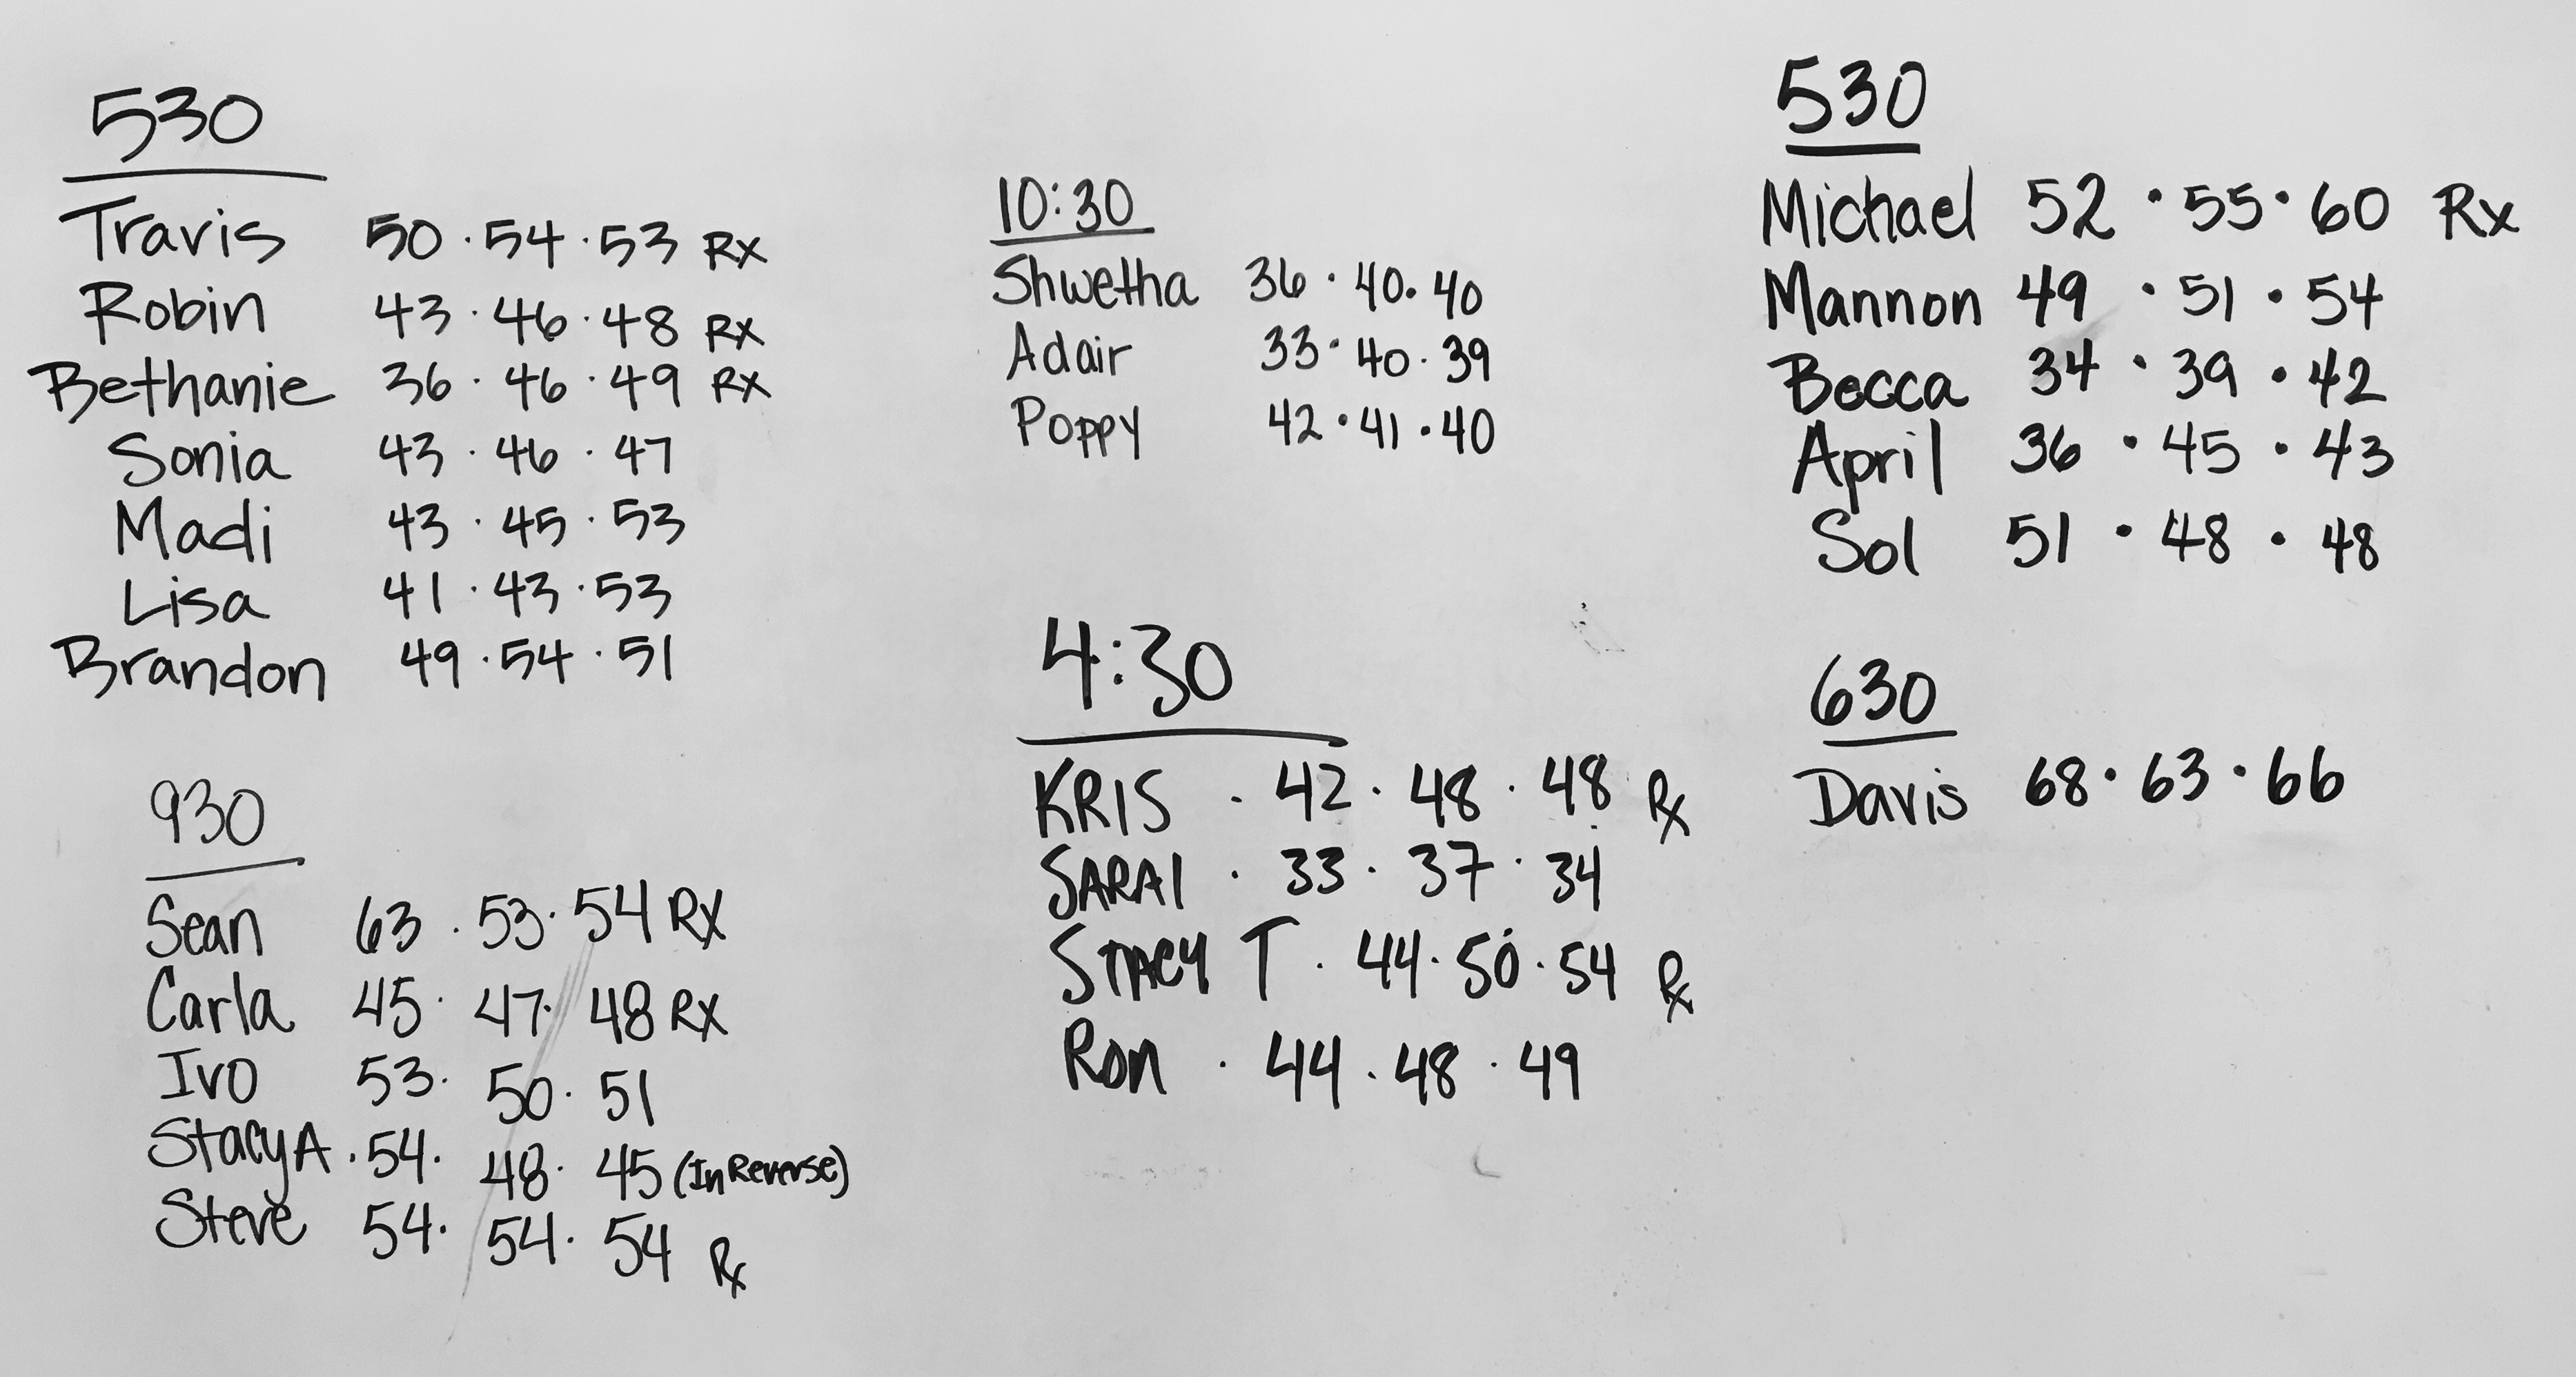 530
Travis 50 · 54 · 53 RX
Robin 43 · 46 · 48 RX
Bethanie 36 · 46 · 49 RX
Sonia 43 · 46 · 47
Madi 43 · 45 · 53
Lisa 41 · 43 · 53
Brandon 49 · 54 · 51
930
Sean 63 · 53 · 54 RX
Carla 45 · 47 · 48 RX
Ivo 53 · 50 · 51
Stacy A · 54 · 48 · 45 (In Reverse)
Steve 54 · 54 · 54 Rx
10:30
Shwetha 36 · 40 · 40
Adair 33 · 40 · 39
Poppy 42 · 41 · 40
4:30
KRIS · 42 · 48 · 48 Rx
SARAI · 33 · 37 · 34
STACY T · 44 · 50 · 54 Rx
Ron · 44 · 48 · 49
530
Michael 52 · 55 · 60 Rx
Mannon 49 · 51 · 54
Becca 34 · 39 · 42
April 36 · 45 · 43
Sol 51 · 48 · 48
630
Davis 68 · 63 · 66